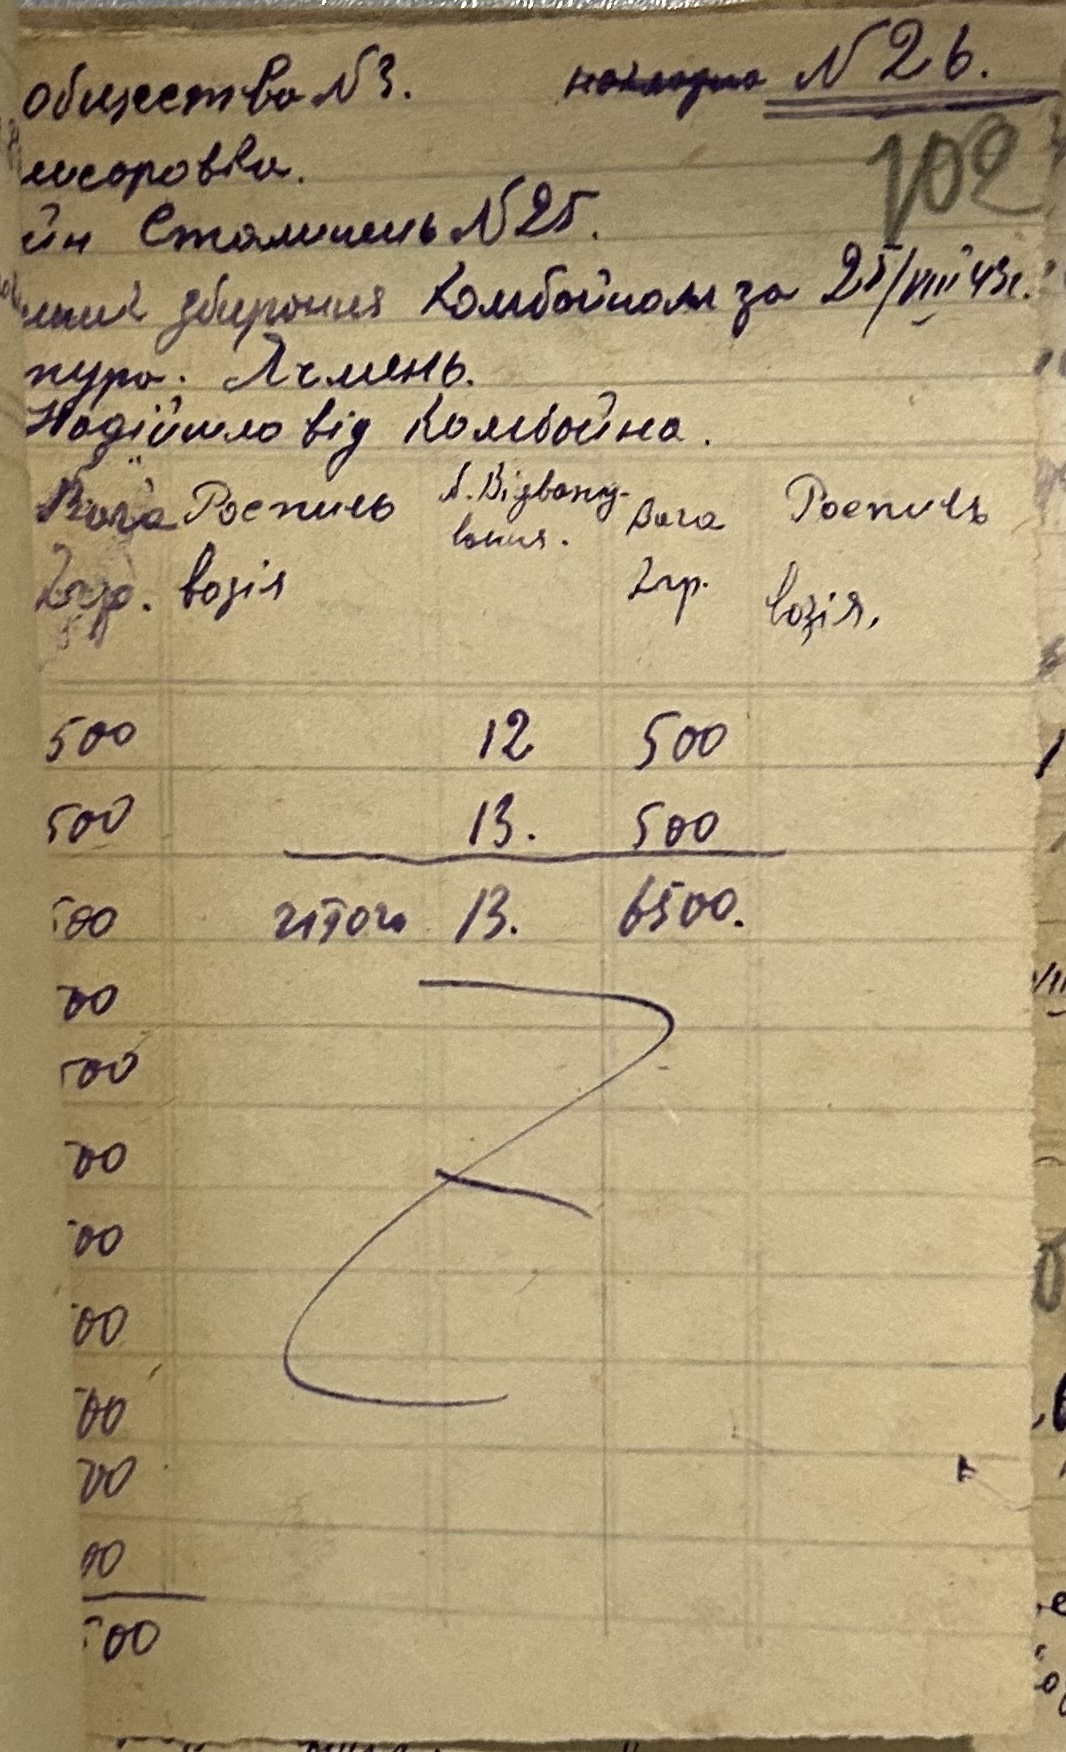 общества N3. накладна N 26.
102
йн Сталинець N25.
збирання комбайном за 25/VIII 43г.
тура. Ячмень.
Надійшло від комбайна.
Вага Роспись N. Відванта- Вага Роспись
ження.
2гр. возія 2гр. возія.
500 12 500
500 13. 500
500 итого 13. 6500.
00
500
00
00
00
00
00
00
500